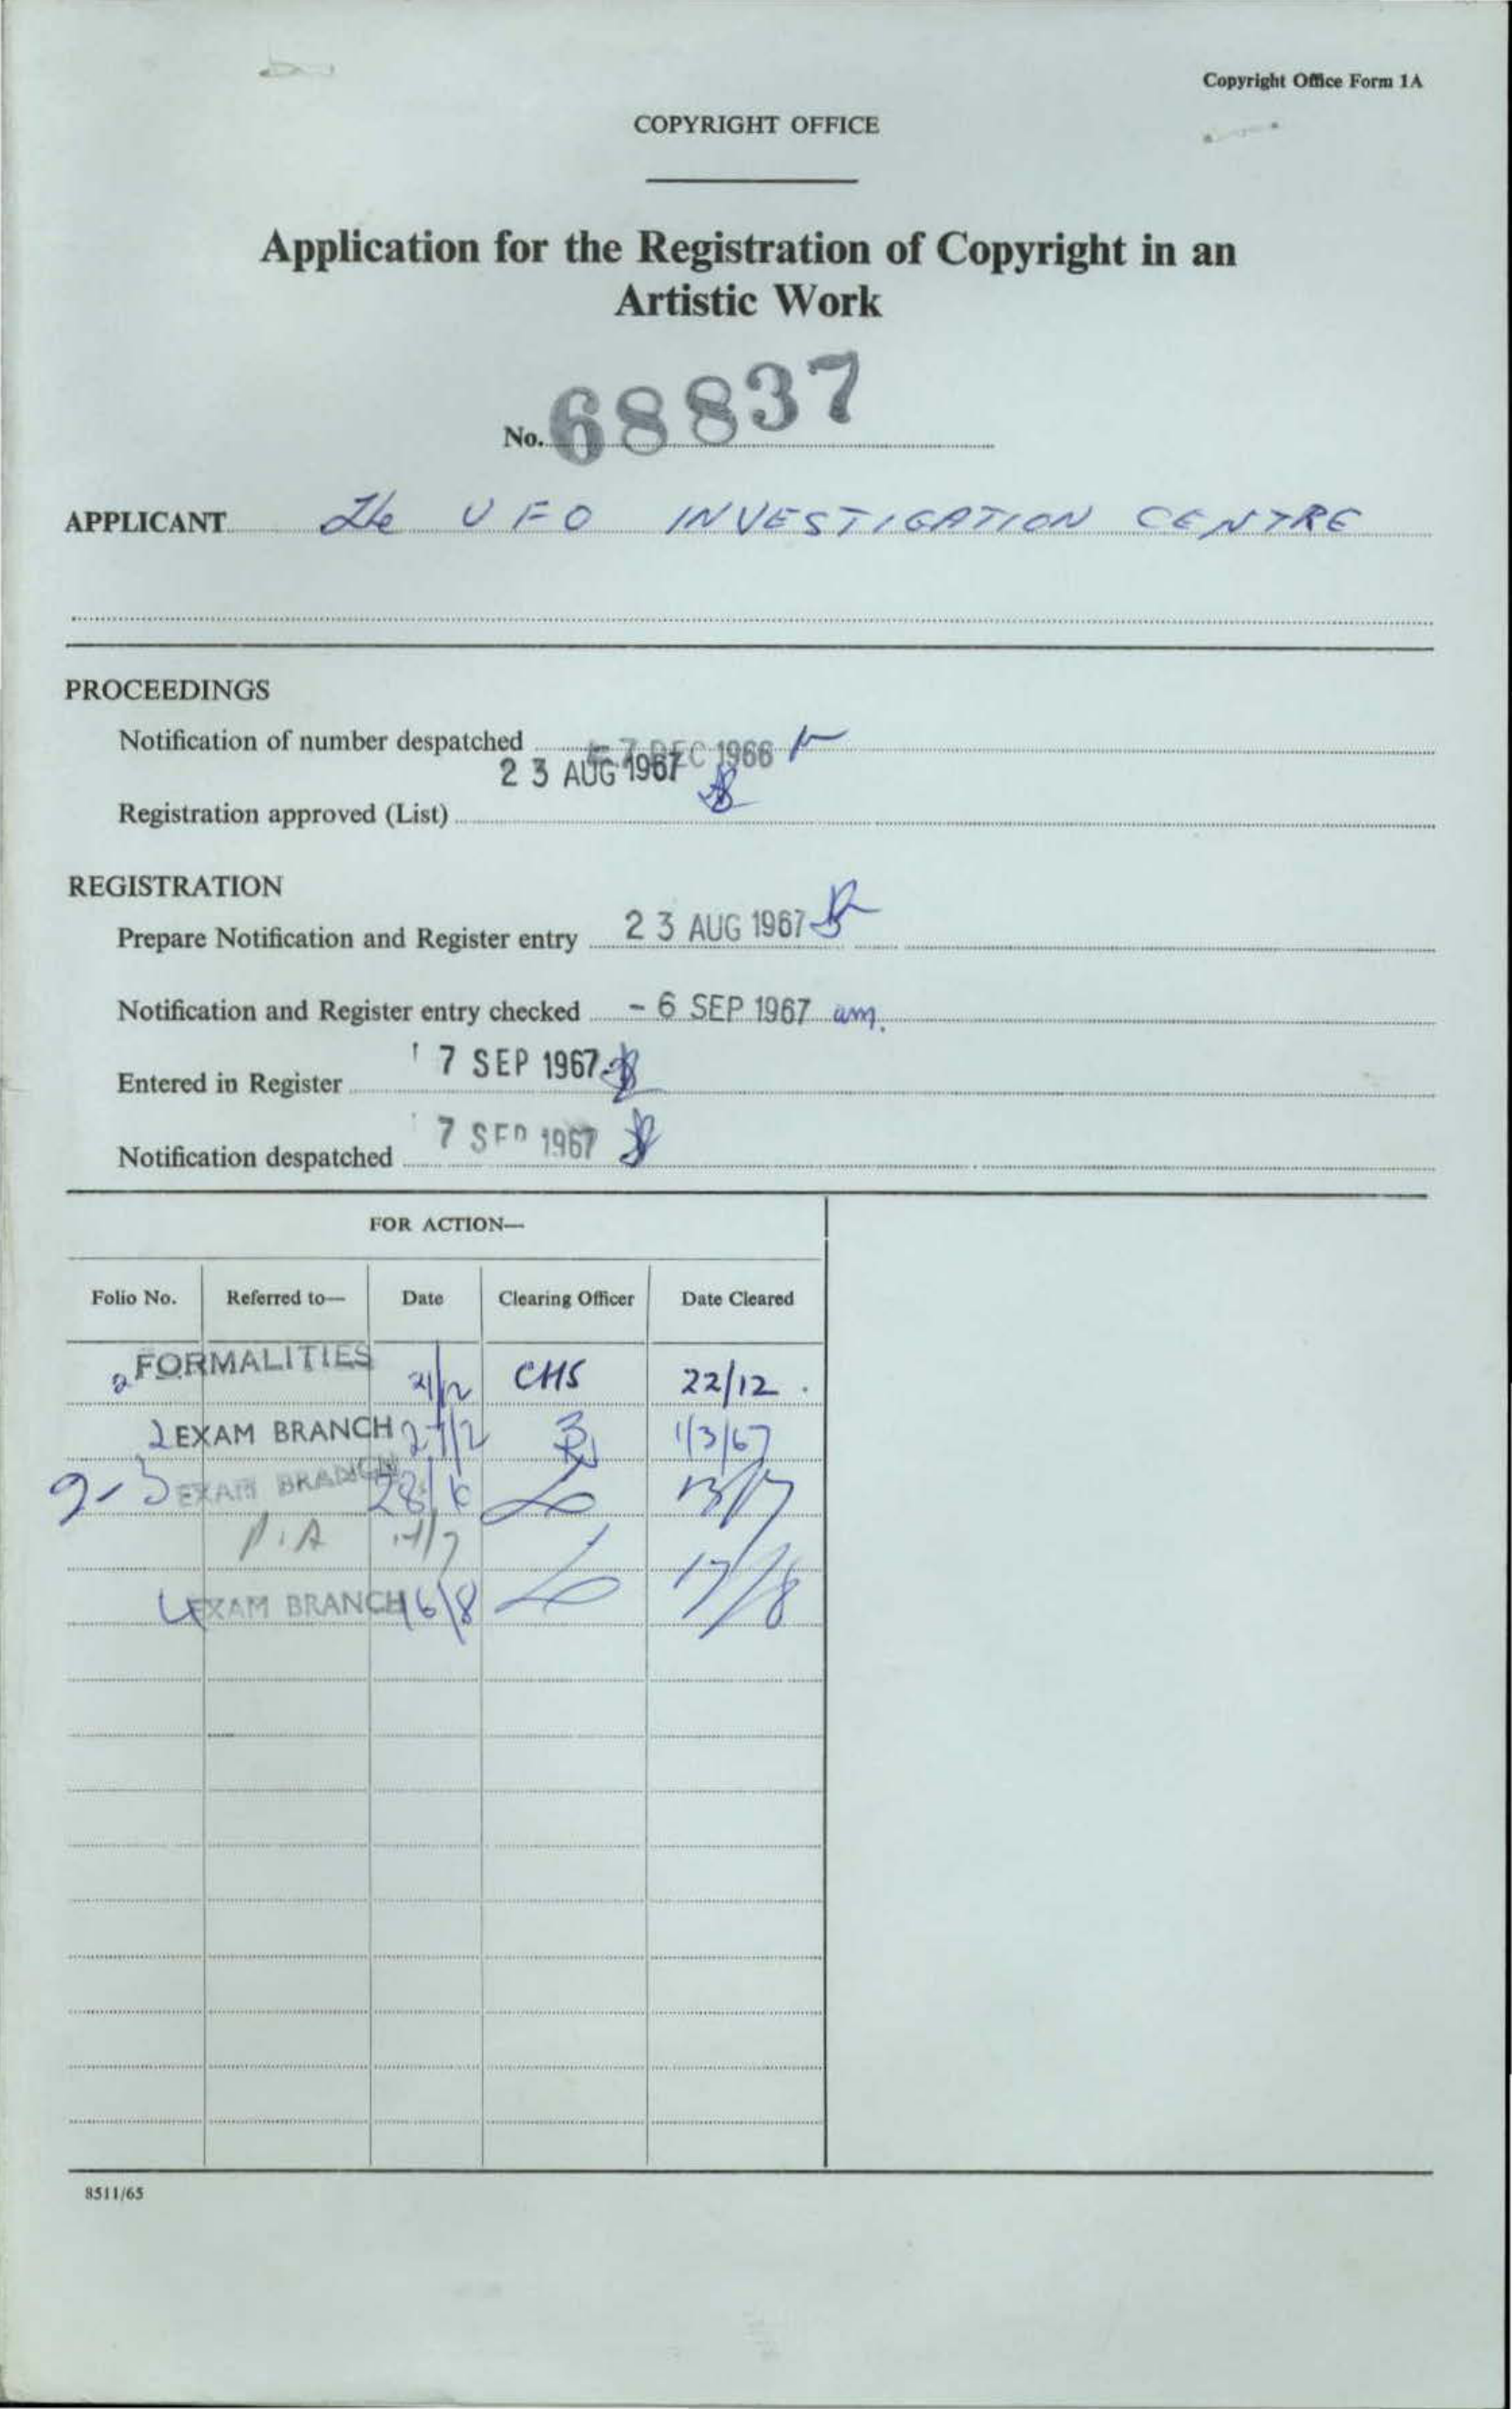 Copyright Office Form 1A
COPYRIGHT OFFICE
Application for the Registration of Copyright in an
Artistic Work
No. 68837
APPLICANT The UFO INVESTIGATION CENTRE
PROCEEDINGS
Notification of number despatched 7 DEC 1966
23 AUG 1967
Registration approved (List)
REGISTRATION
Prepare Notification and Register entry 23 AUG 1967
Notification and Register entry checked - 6 SEP 1967 am.
Entered in Register 7 SEP 1967
Notification despatched 7 SEP 1967
FOR ACTION—
Folio No. Referred to— Date Clearing Officer Date Cleared
2 FORMALITIES 21/12 CHS 22/12
2 EXAM BRANCH 27/2 1/3/67
2-3 EXAM BRANCH 28/6 13/7
P.A
4 EXAM BRANCH 16/8 17/8
8511/65